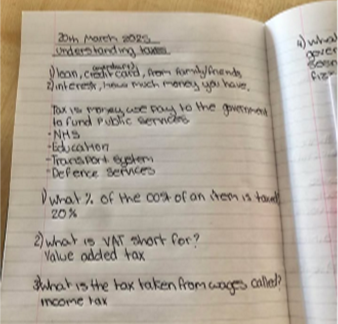 20th March 2025
Understanding taxes
1) loan, credit card, from family/friends
2) interest, how much money you have.
Tax is money we pay to the government
to fund public services
-NHS
-Education
-Transport system
-Defence services
1) What % of the cost of an item is taxed
20%
2) What is VAT short for?
Value added tax
3) What is the tax taken from wages called?
income tax
4) What